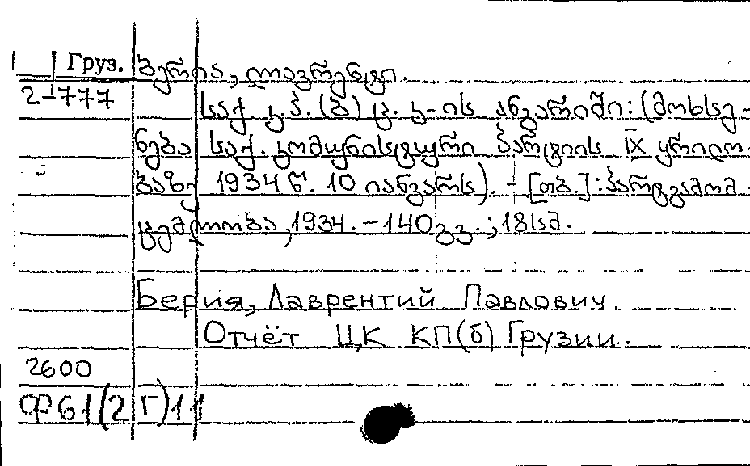 Груз. ბერია, ლავრენტი.
2-777 საქ. კ. პ. (ბ) ც. კ-ის ანგარიში: (მოხსე-
ნება საქ. კომუნისტური პარტიის IX ყრილო-
ბაზე 1934 წ. 10 იანვარს). - [თბ.]: პარტგამომ-
ცემლობა, 1934. - 140 გვ.; 18 სმ.
Берия, Лаврентий Павлович.
Отчёт ЦК КП(б) Грузии.
2600
Ф61(2Г)11